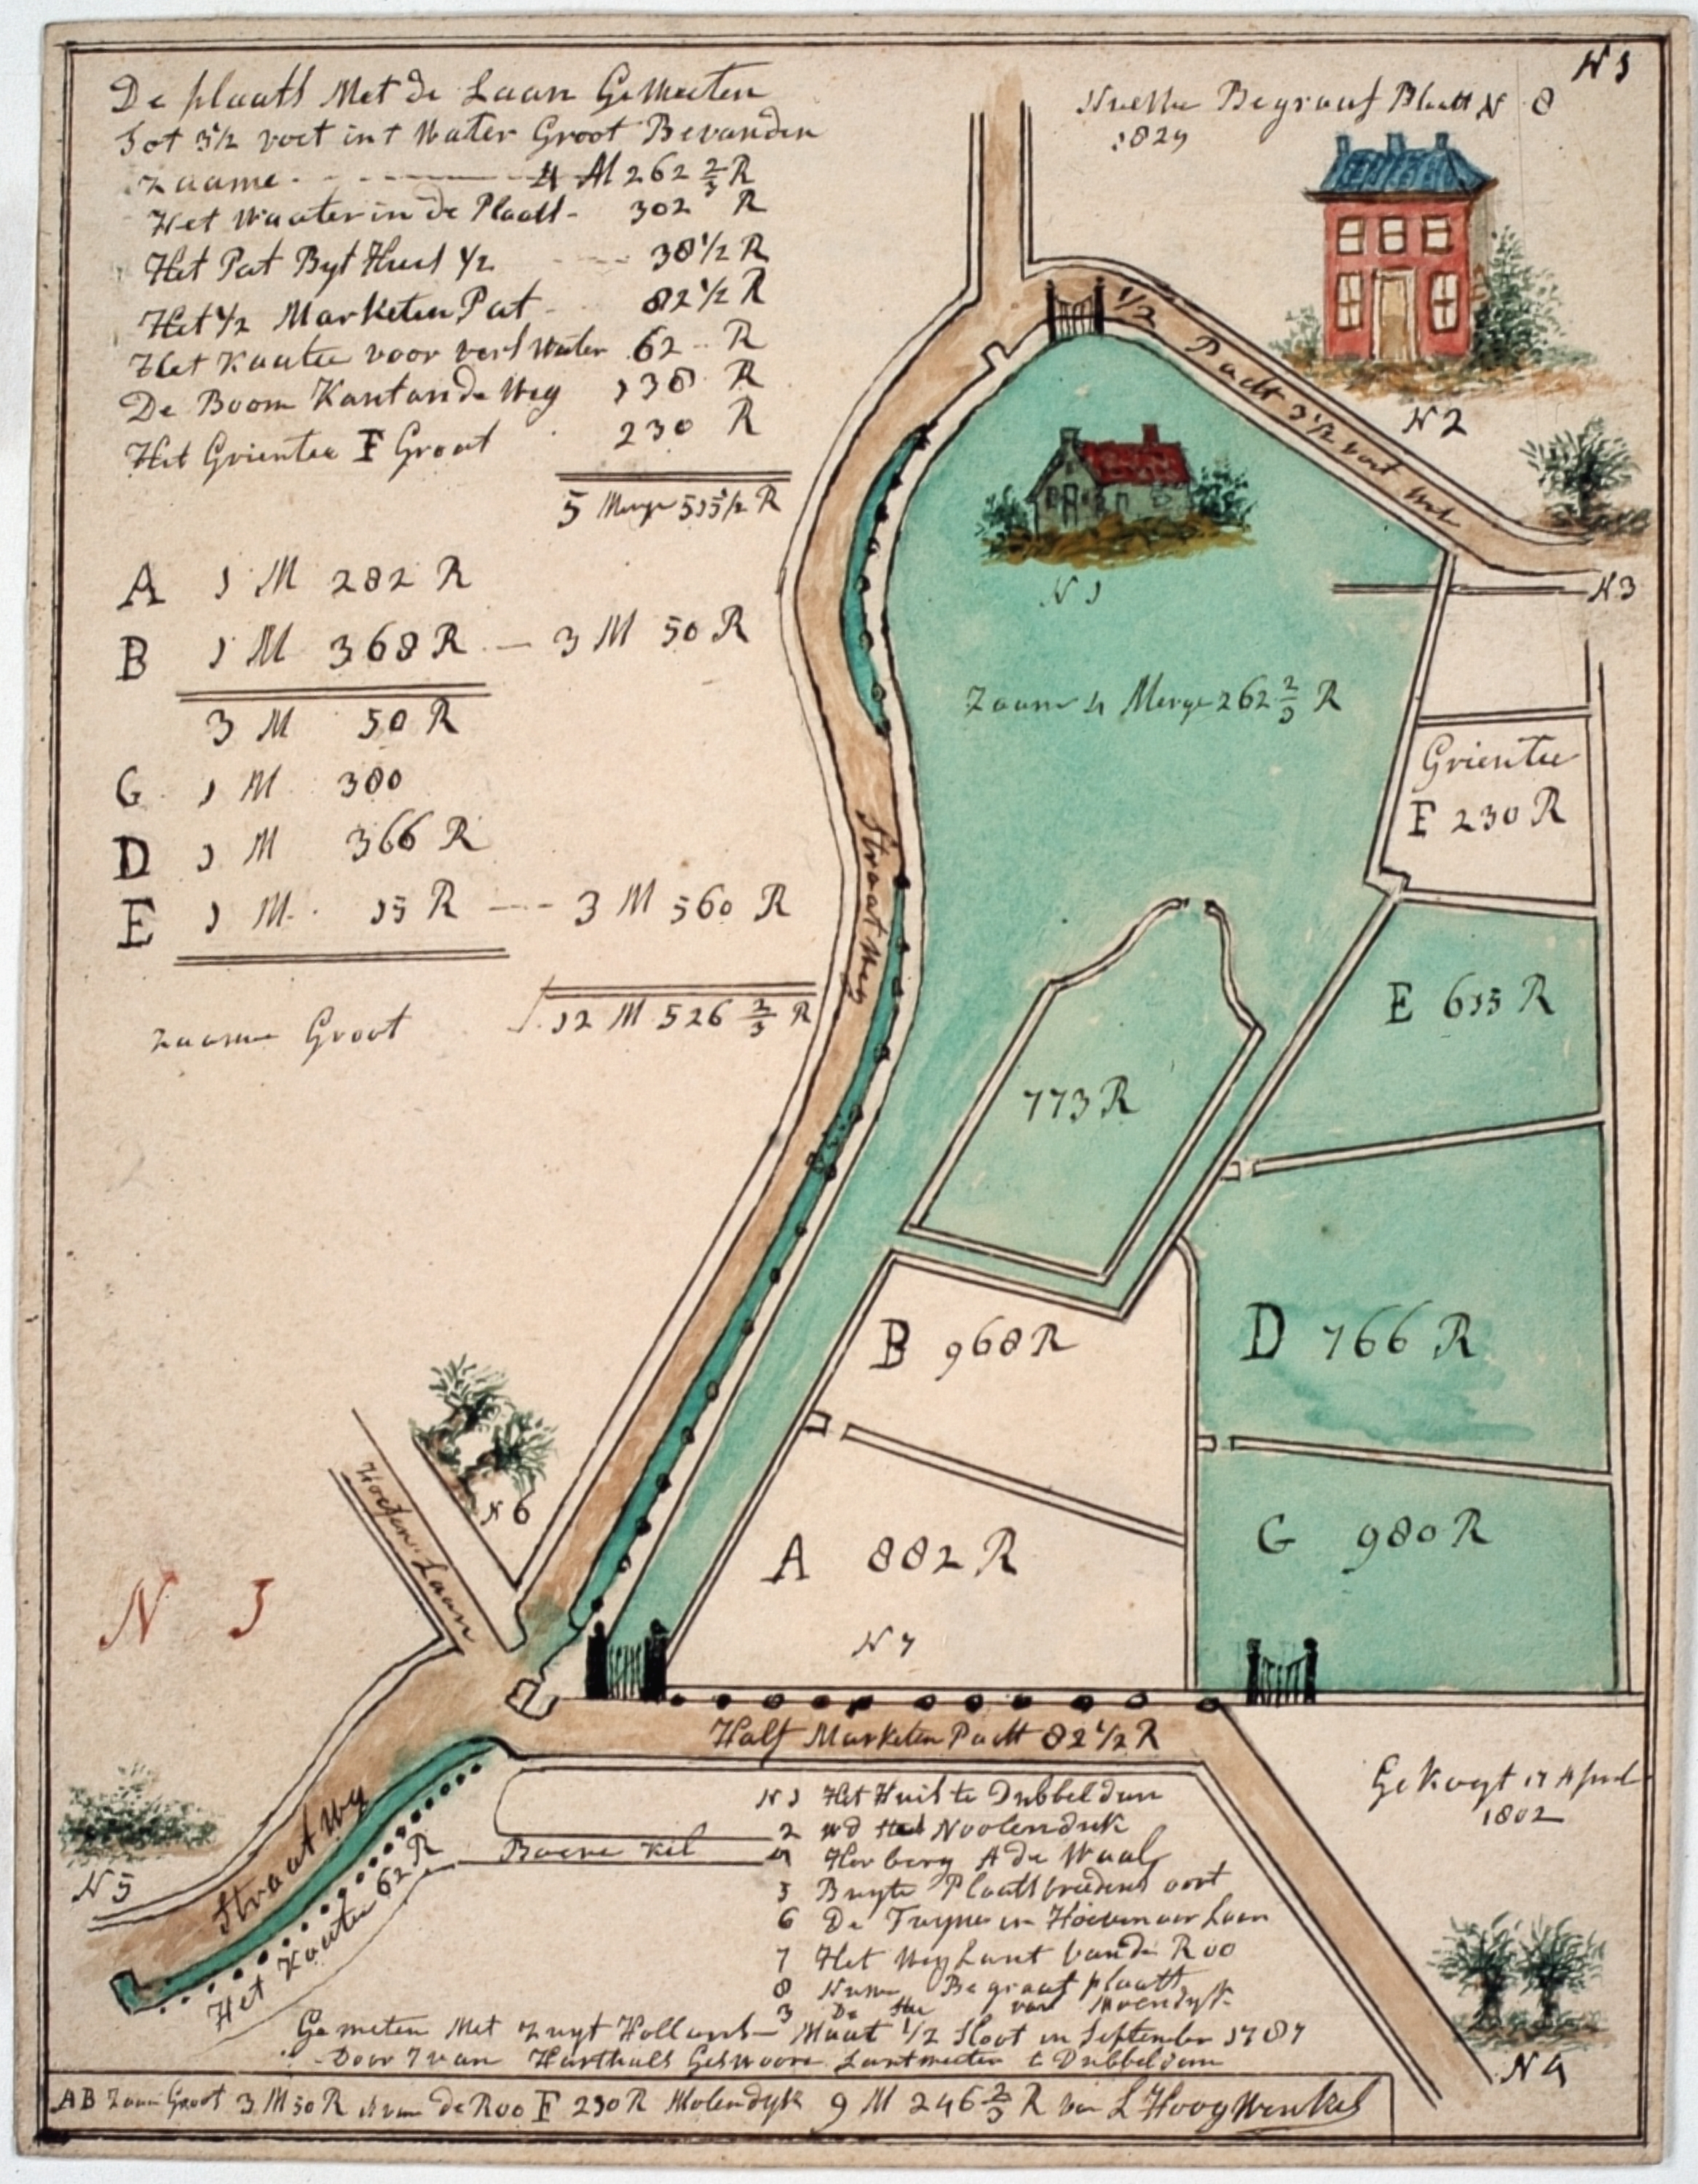 N 1
De plaats Met de Laan Gemeeten
Tot 3 1/2 voet int Water Groot Bevonden
Zaame 4 M 262 2/3 R
Het Waater in de Plaats - 302 R
Het Pat Byt Huis 1/2 38 1/2 R
Het 1/2 Marketen Pat 82 1/2 R
Het Kaatee voor vers Water 62 R
De Boom Kant an de Weg 138 R
Het Grientee F Groot 230 R
5 Merge 515 1/2 R
A 1 M 282 R
B 1 M 368 R - 3 M 50 R
3 M 50 R
G 1 M 380
D 1 M 366 R
E 1 M 15 R --- 3 M 560 R
Zaame Groot 12 M 526 2/3 R
Begraaf Plaatt N 8
1829
1/2 Padt 3 1/2 voet
N 2
N 3
N 1
Zaam 4 Merge 262 2/3 R
Grientee
F 230 R
Straat Weg
E 615 R
773 R
D 766 R
B 968 R
G 980 R
A 882 R
N 7
N 6
Hoefen Laan
N 5
Half Marketen Padt 82 1/2 R
Gekogt 17 April
1802
Straat Weg
N 5
Het Kaatee 62 R
Boere Kil
N 1 Het Huis te Dubbeldam
2 Noolendiik
4 Herberg A de Waal
5 Buyte Plaats
6 De Tuyne
7 Het Weylant van de Roo
8 Begraaf plaatt
3 De van
N 4
Gemeten Met Zuyt Hollans Maat 1/2 Sloot in September 1787
Door Lantmeeter t Dubbeldam
AB Zaam Groot 3 M 50 R van de Roo F 230 R Molendyk 9 M 246 2/3 R van L Hoogwenkel